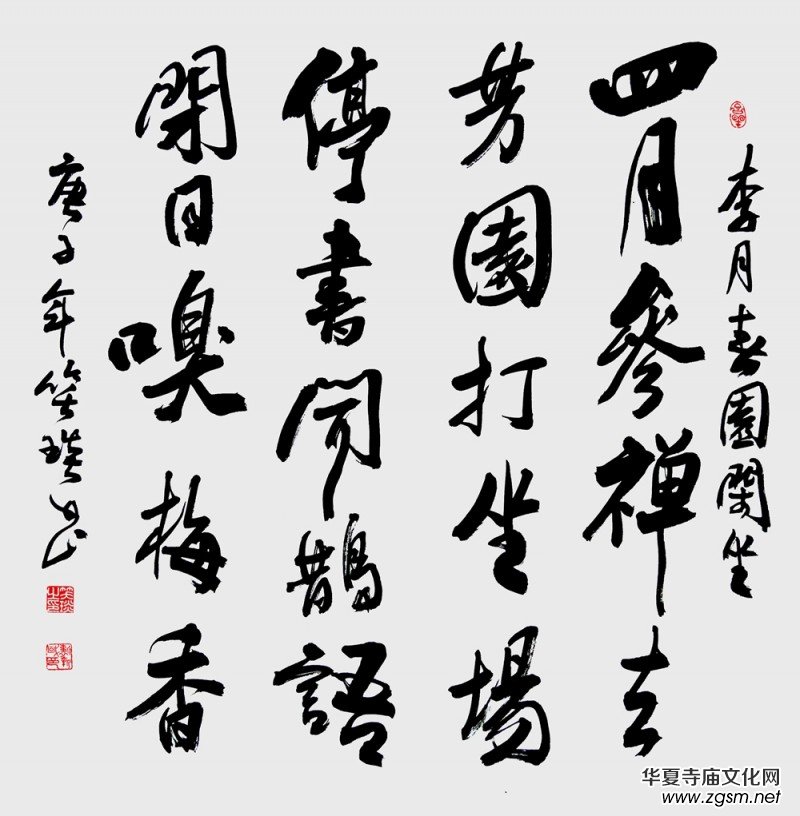 李月春園閑坐
四月參禪去
芳園打坐場
停書聞鵲語
閉目嗅梅香
庚子年笑琰
华夏寺庙文化网
www.zgsm.net